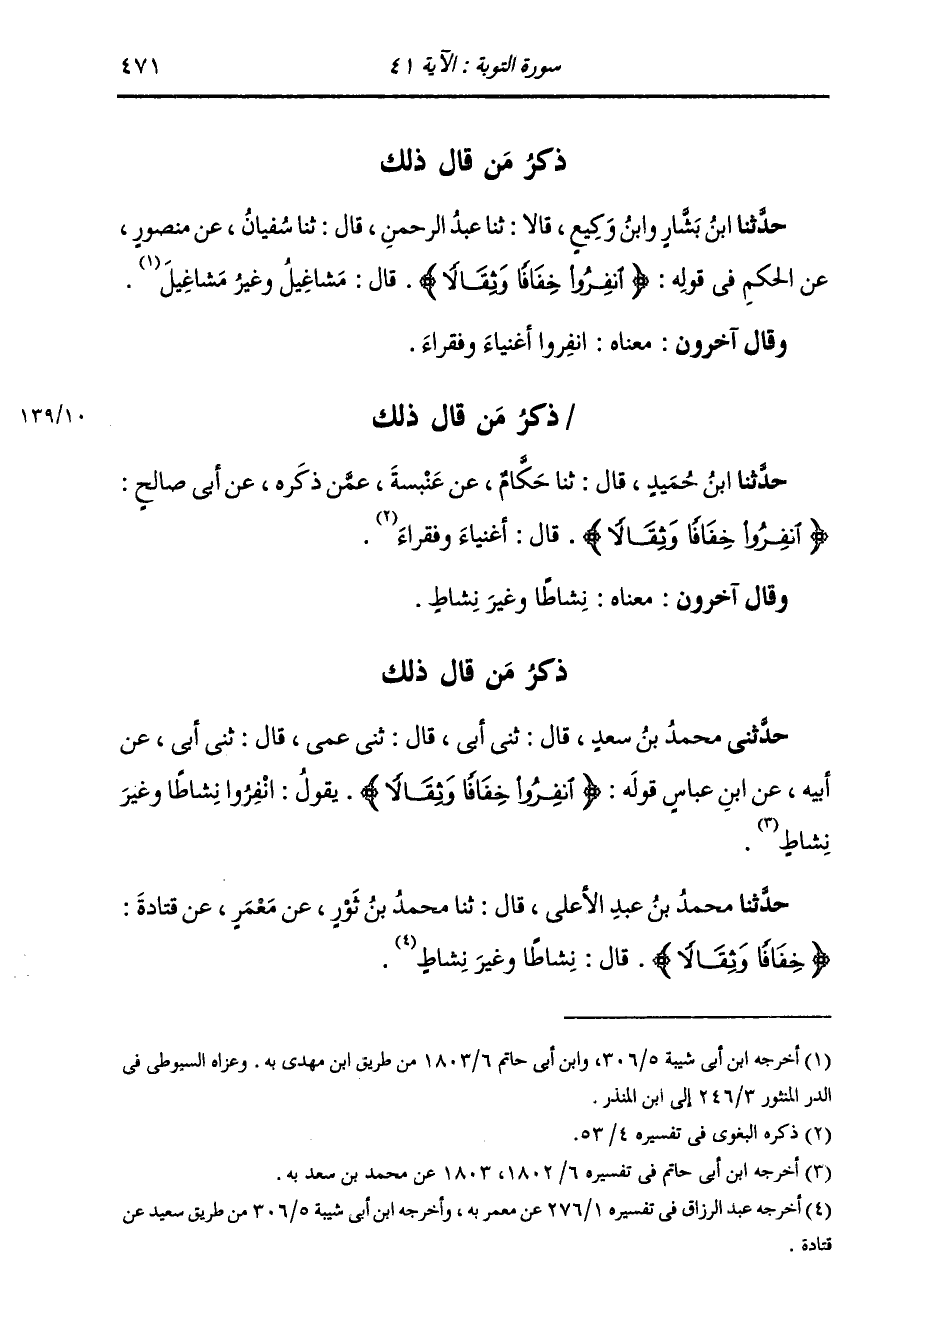 سورة التوبة : الآية ٤١ ٤٧١
ذكرُ مَن قال ذلك
حدَّثنا ابنُ بَشَّارٍ وابنُ وَكِيعٍ ، قالا : ثنا عبدُ الرحمنِ ، قال : ثنا سُفيانُ ، عن منصورٍ ،
عن الحكمِ فى قولِه : ﴿ ٱنفِرُوا۟ خِفَافًا وَثِقَالًا ﴾ . قال : مَشاغِيلُ وغيرُ مَشاغِيلَ (١) .
وقال آخرون : معناه : انفِروا أغنياءَ وفقراءَ .
/ ذكرُ مَن قال ذلك ١٣٩/١٠
حدَّثنا ابنُ حُمَيدٍ ، قال : ثنا حَكَّامٌ ، عن عَنْبسةَ ، عمَّن ذكَره ، عن أبى صالحٍ :
﴿ ٱنفِرُوا۟ خِفَافًا وَثِقَالًا ﴾ . قال : أغنياءَ وفقراءَ (٢) .
وقال آخرون : معناه : نِشاطًا وغيرَ نِشاطٍ .
ذكرُ مَن قال ذلك
حدَّثنى محمدُ بنُ سعدٍ ، قال : ثنى أبى ، قال : ثنى عمى ، قال : ثنى أبى ، عن
أبيه ، عن ابنِ عباسٍ قولَه : ﴿ ٱنفِرُوا۟ خِفَافًا وَثِقَالًا ﴾ . يقولُ : انْفِرُوا نِشاطًا وغيرَ
نِشاطٍ (٣) .
حدَّثنا محمدُ بنُ عبدِ الأعلى ، قال : ثنا محمدُ بنُ ثَوْرٍ ، عن مَعْمَرٍ ، عن قتادةَ :
﴿ خِفَافًا وَثِقَالًا ﴾ . قال : نِشاطًا وغيرَ نِشاطٍ (٤) .
(١) أخرجه ابن أبى شيبة ٣٠٦/٥، وابن أبى حاتم ١٨٠٣/٦ من طريق ابن مهدى به . وعزاه السيوطى فى
الدر المنثور ٢٤٦/٣ إلى ابن المنذر .
(٢) ذكره البغوى فى تفسيره ٤/ ٥٣.
(٣) أخرجه ابن أبى حاتم فى تفسيره ٦/ ١٨٠٢، ١٨٠٣ عن محمد بن سعد به .
(٤) أخرجه عبد الرزاق فى تفسيره ٢٧٦/١ عن معمر به ، وأخرجه ابن أبى شيبة ٣٠٦/٥ من طريق سعيد عن
قتادة .